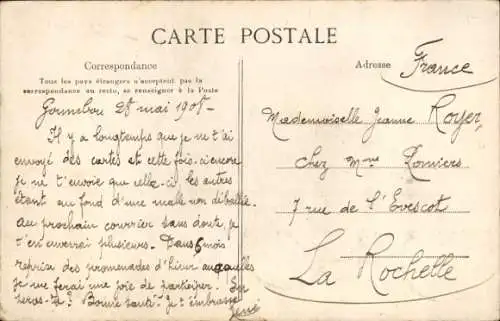 CARTE POSTALE
Correspondance
Tous les pays étrangers n'acceptent pas la
correspondance au recto, se renseigner à la Poste
28 mai 190
Il y a longtemps que je ne t'ai
envoyé des cartes et cette fois-ci encore
je ne t'envoie que celle-ci, les autres
étant au fond d'une malle non déballée.
Au prochain courrier sans doute, je
t'en enverrai plusieurs. Dans 6 mois
reprise des promenades d'hiver auxquelles
je me ferai une joie de participer.
Bonne santé. Je t'embrasse
Adresse
France
Mademoiselle Jeanne Royer
chez Mme
7 rue de l'Evescot
La Rochelle